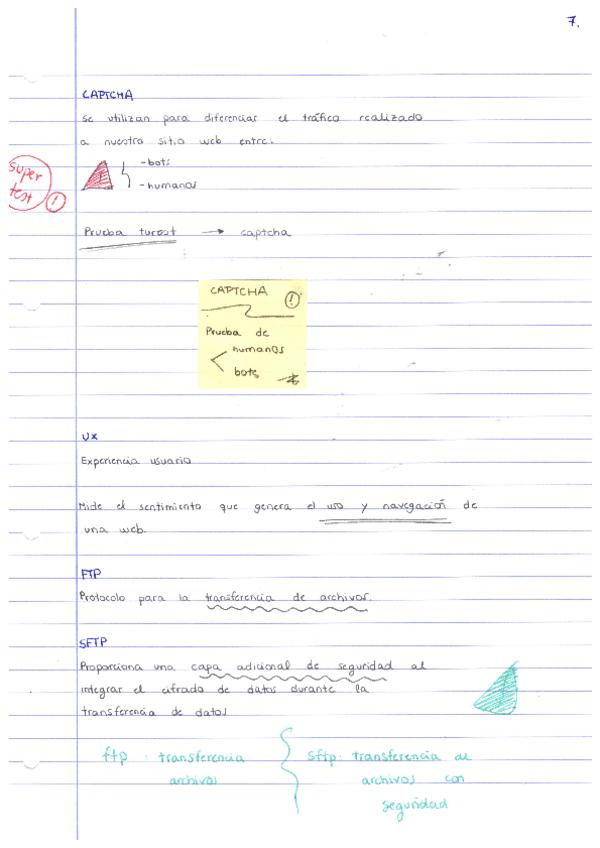 7.
CAPTCHA
se utilizan para diferenciar el tráfico realizado
a nuestro sitio web entre:
super
test !
- bots
- humanos
Prueba turest → captcha
CAPTCHA !
Prueba de
humanos
bots
UX
Experiencia usuario
Mide el sentimiento que genera el uso y navegación de
una web.
FTP
Protocolo para la transferencia de archivos.
SFTP
Proporciona una capa adicional de seguridad al
integrar el cifrado de datos durante la
transferencia de datos
ftp : transferencia
archivos
Sftp: transferencia de
archivos con
seguridad